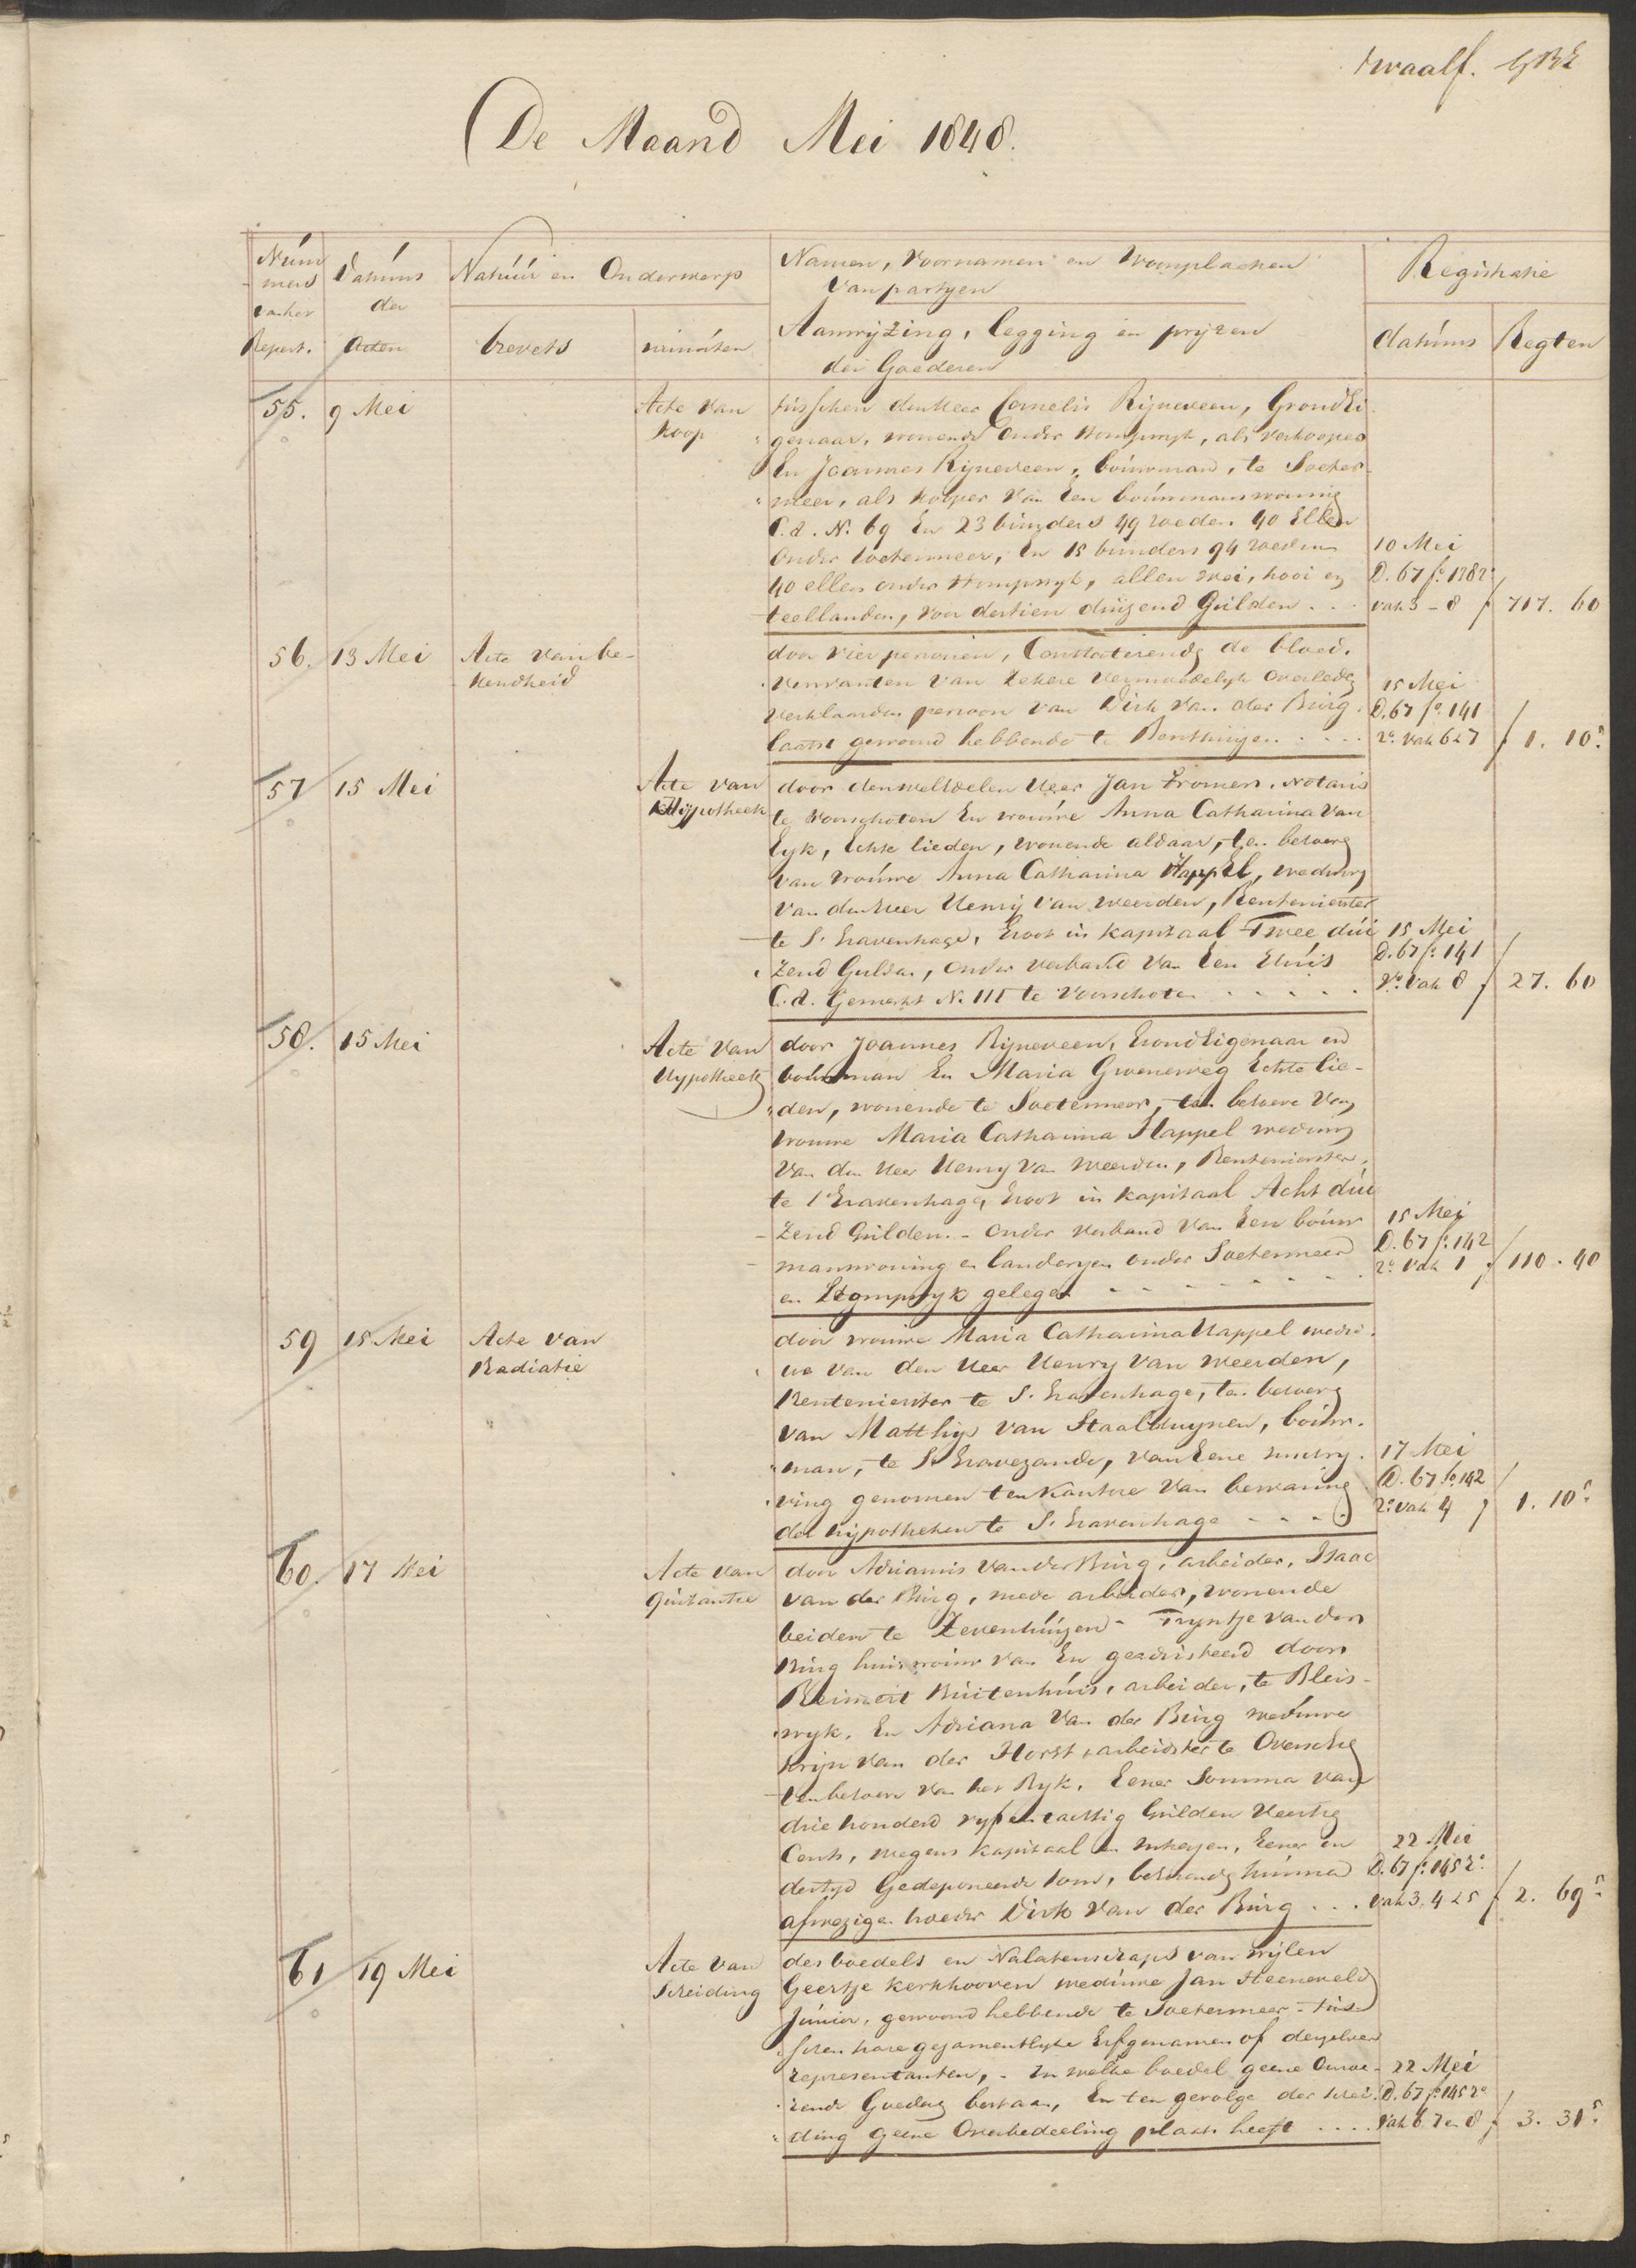 twaalf.
De Maand Mei 1848.
Num
mers
van het
Repert.
Datúms
der
Acten
Natúúr en Onderwerp
brevets
minúten
Namen, Voornamen en Woonplaatsen
van partyen
Aanwyzing, legging en pryzen
der Goederen
Registratie
datúms
Regten
55. 9 Mei
Acte van
Koop
tússchen den Heer Cornelis Rijneveen, GrondEi-
genaar, wonende onder Stompwyk, als verkooper
En Joannes Rijneveen, boúwman, te Soeter-
meer, als kooper van Een boúwmanswoning
C.a. N. 69 En 23 bunders 49 roeden 40 Ellen
onder Soetermeer, En 15 bunders 94 roeden
40 ellen onder Stompwyk, allen wei, hooi en
teellanden, voor dertien duizend Gúlden . . .
10 Mei
D. 67 fo. 138 2o
vak 3 - 8
f 717. 60
56. 13 Mei
Acte van be-
kendheid
door vier personen, Constaterende de bloed.
verwanten van zekere vermoedelyk overleden
verklaarden persoon van Dirk van der Búrg.
laatst gewoond hebbende te Benthuizen . . . .
15 Mei
D. 67 fo. 141
2o. vak 6 & 7
f 1. 10 5
57 15 Mei
Acte van
Hypotheek
door den welEdelen Heer Jan Fromen, Notaris
te Voorschoten En vroúwe Anna Catharina van
Eyk, Echte lieden, wonende aldaar, ten behoeve
van vroúwe Anna Catharina Happel, weduwe
van den Heer Henrij van Weerden, Rentenierster
te S. Gravenhage, Groot in kapitaal Twee dúi
zend Gulden, onder verband van Een Húis
C.a. Gemerkt N. 111 te Voorschoten . . . . .
15 Mei
D. 67 fo. 141
2o. vak 8
f 27. 60
58. 15 Mei
Acte van
Hypotheek
door Joannes Rijneveen, GrondEigenaar en
boúwman En Maria Groeneweg Echte lie-
den, wonende te Soetermeer, ten behoeve van
vrouwe Maria Catharina Happel weduwe
van den Heer Henry van Weerden, Rentenierster,
te 'S Gravenhage, Groot in kapitaal Acht dúi
zend Gúlden. - onder verband van Een boúw
manswoning en landeryen onder Soetermeer
en Stompwyk gelegen - - - - - -
15 Mei
D. 67 fo. 142
2o. vak 1
f 110. 40
59 15 Mei
Acte van
Radiatie
door vroúwe Maria Catharina Happel wedu-
we van den Heer Henry van Weerden,
Rentenierster te S. Gravenhage, ten behoeve
van Matthijs van Staalduynen, boúw-
man, te S. Gravezande, van Eene inschry-
ving genomen ten Kantore van bewaring
der hypotheken te S. Gravenhage - - - -
17 Mei
D. 67 fo. 142
2o. vak 4
f 1. 10 5
60. 17 Mei
Acte van
Quitantie
door Adrianús van der Búrg, arbeider, Isaac
van der Búrg, mede arbeider, wonende
beiden te Zevenhúizen - Tryntje van der
Búrg huisvroúw van En geadsisteerd door
Reimert Búitenhúis, arbeider, te Bleis-
wyk. En Adriana van der Búrg wedúwe
Krijn van der Horst, arbeidster te Overschie
ten behoeve van het Ryk. Eener Somma van
drie honderd vyf en tachtig Gúlden Veertig
Cents, wegens kapitaal en intresen, Eener in
dertyd Gedeponeerde som, betreffende húnnen
afwezigen broeder Dirk van der Búrg . . .
22 Mei
D. 67 fo. 145 2o.
vak 3. 4 & 5
f 2. 69 5
61 19 Mei
Acte van
Scheiding
des boedels en Nalatenschaps van wijlen
Geertje Kerkhooven wedúwe Jan Steeneveld
Júnior, gewoond hebbende te Soetermeer - tús-
schen hare gezamentlyke Erfgenamen of derzelver
representanten, - In welke boedel geene Onroe-
rende Goederen bestaan, En ten gevolge der schei-
ding geene Overbedeeling plaats heeft . . . .
22 Mei
D. 67 fo. 145 2o
vak 6. 7 en 8
f 3. 31 5